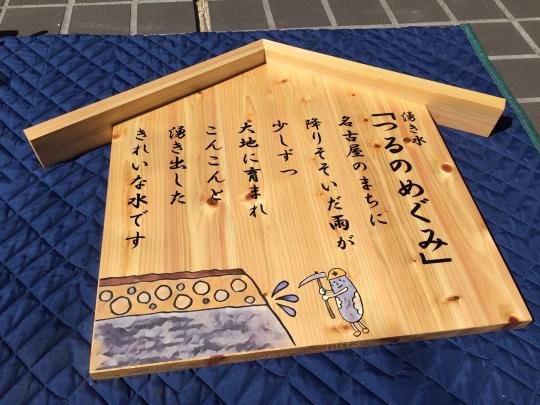 湧き水
「つるのめぐみ」
名古屋のまちに
降りそそいだ雨が
少しずつ
大地に育まれ
こんこんと
湧き出した
きれいな水です